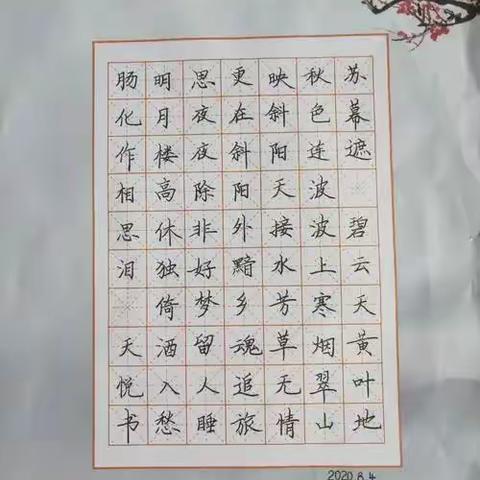 苏幕遮 碧云天黄叶地
秋色连波波上寒烟翠山
映斜阳天接水芳草无情
更在斜阳外黯乡魂追旅
思夜夜除非好梦留人睡
明月楼高休独倚酒入愁
肠化作相思泪 天悦书
2020